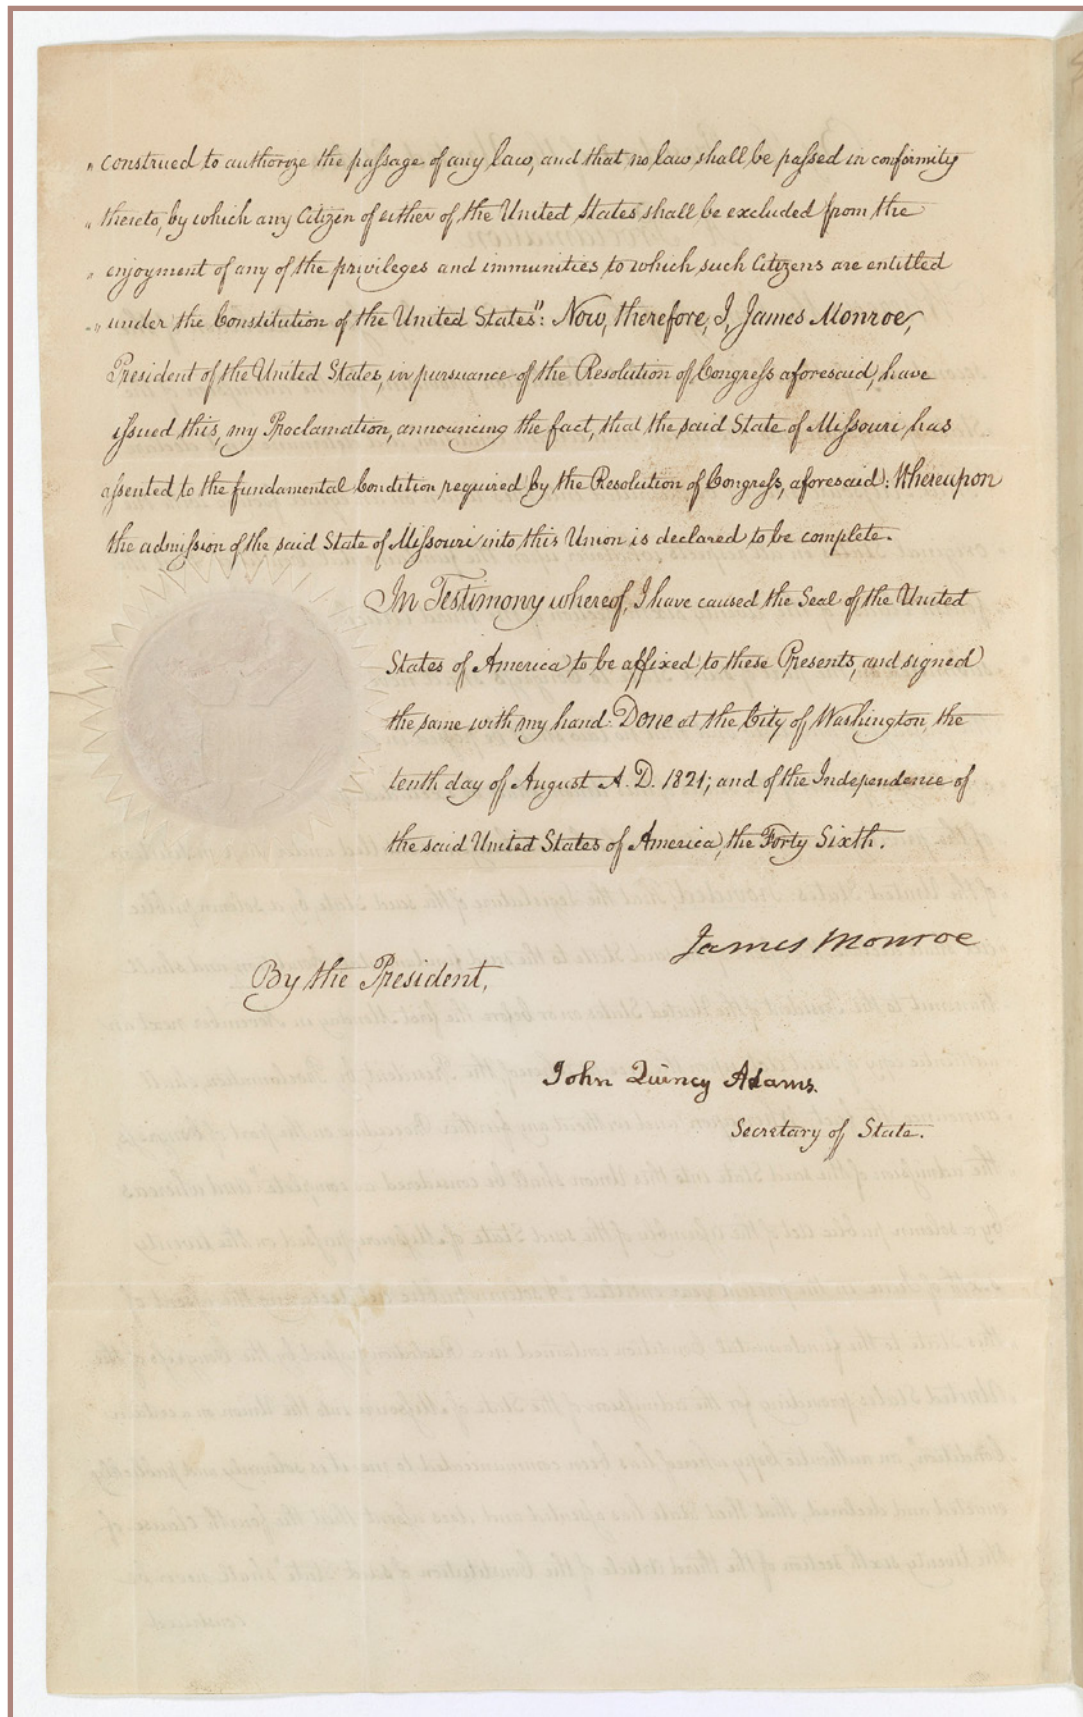 " construed to authorize the passage of any law, and that no law shall be passed in conformity
" thereto, by which any Citizen of either of the United States shall be excluded from the
" enjoyment of any of the privileges and immunities to which such Citizens are entitled
" under the Constitution of the United States": Now, therefore, I, James Monroe,
President of the United States, in pursuance of the Resolution of Congress aforesaid, have
issued this, my Proclamation, announcing the fact, that the said State of Missouri has
assented to the fundamental Condition required by the Resolution of Congress, aforesaid: Whereupon
the admission of the said State of Missouri into this Union is declared to be complete.
In Testimony whereof, I have caused the Seal of the United
States of America to be affixed to these Presents, and signed
the same with my hand. Done at the City of Washington, the
tenth day of August A. D. 1821; and of the Independence of
the said United States of America, the Forty Sixth.
James Monroe
By the President,
John Quincy Adams.
Secretary of State.